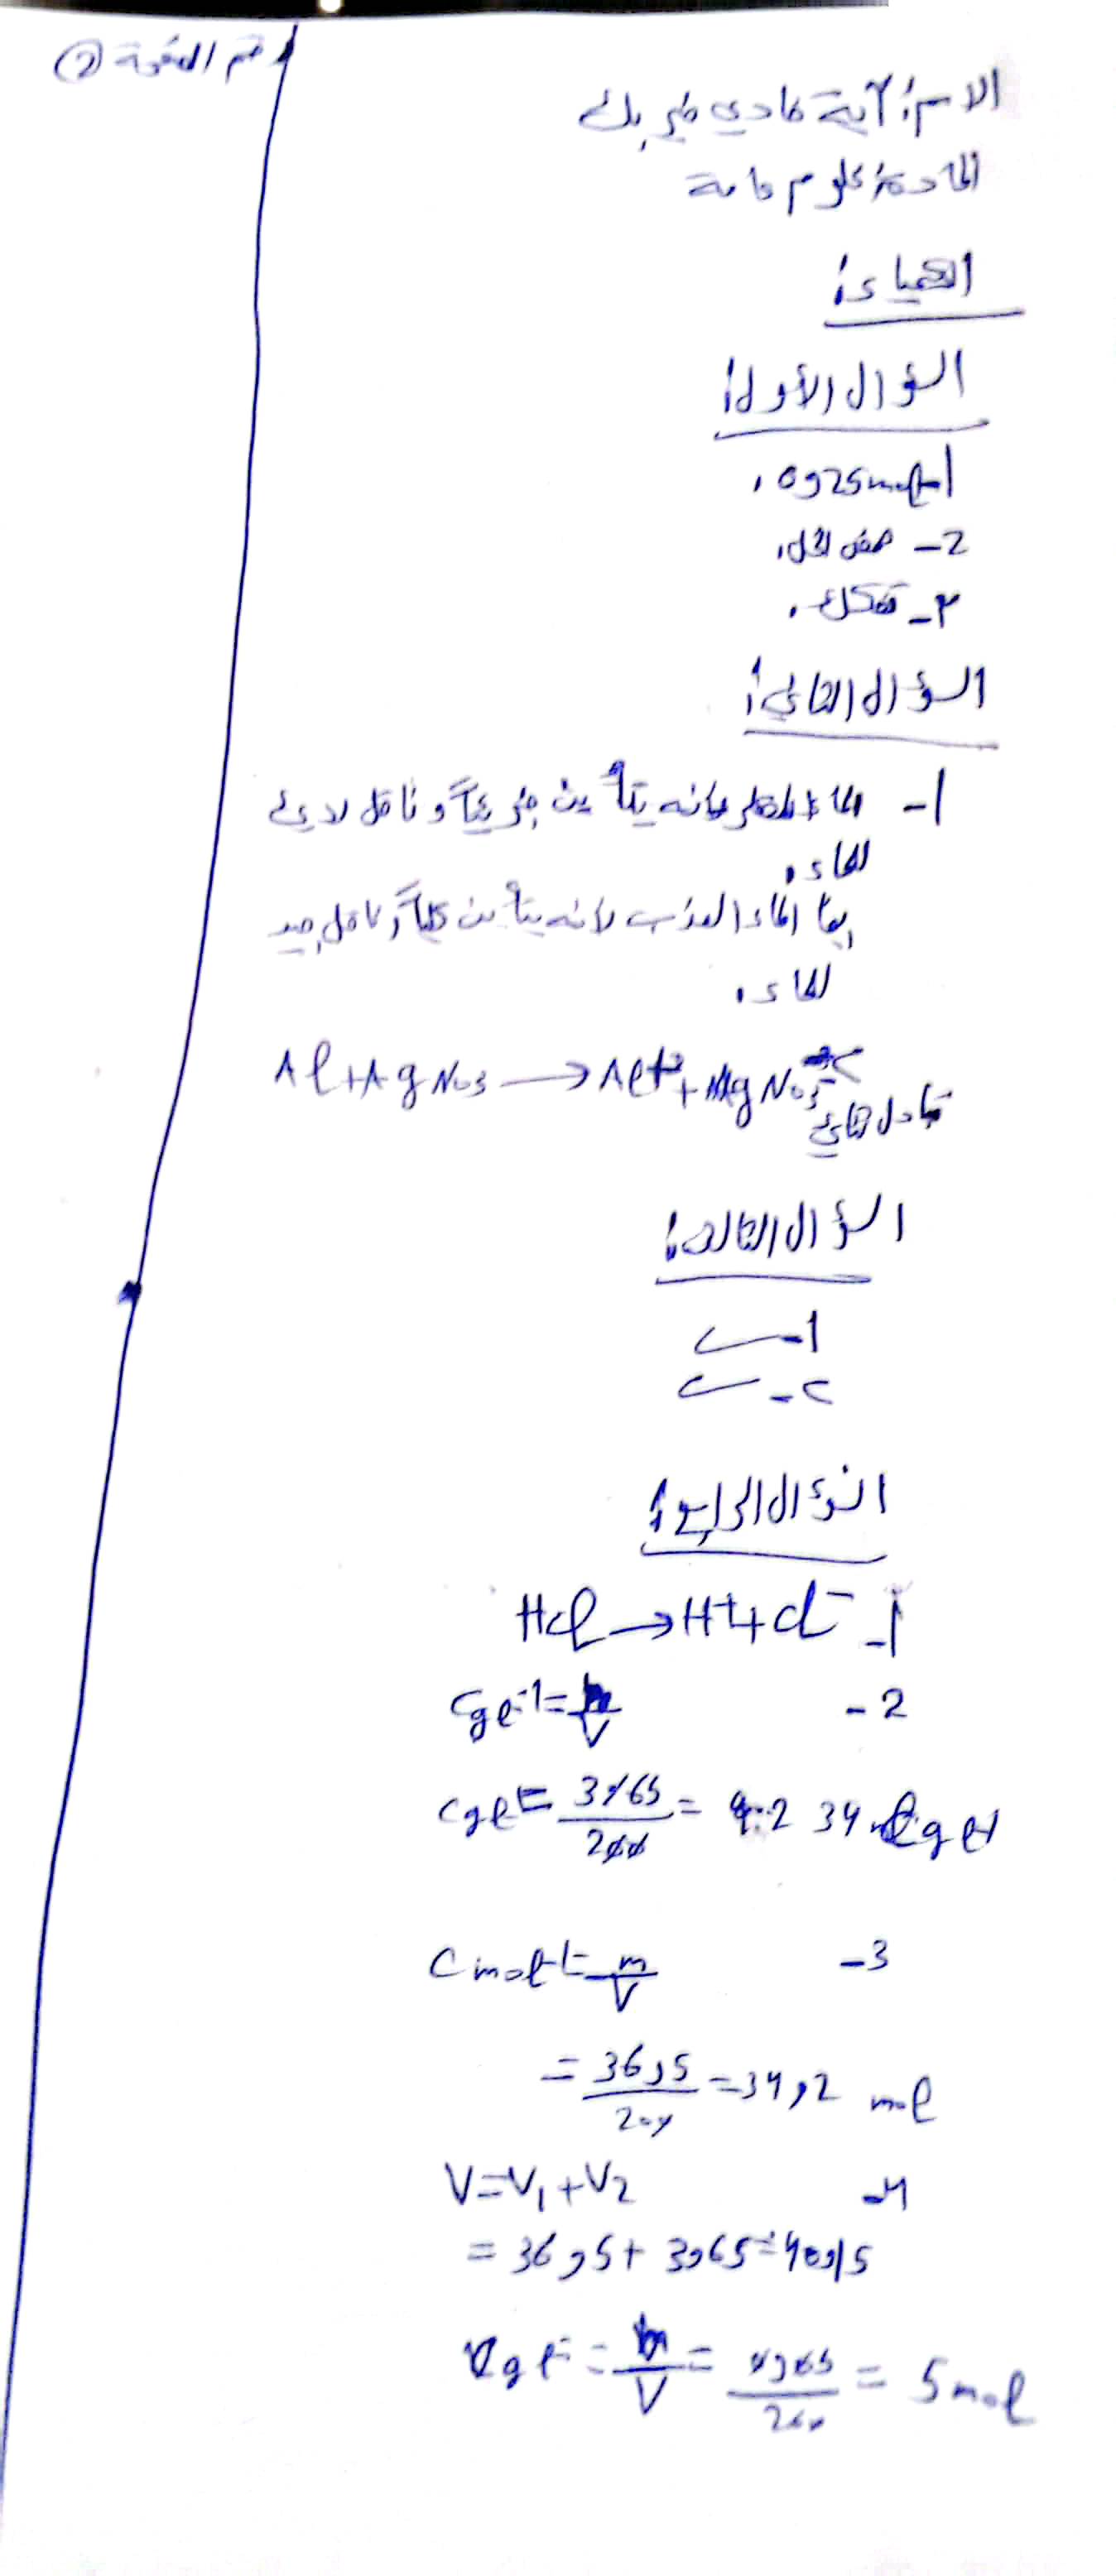 رقم الصفحة (2)
الاسم: آية هادي خير بك
المادة: علوم عامة
الكيمياء:
السؤال الأول:
1- 0,25 mol l-1.
2- حمض الخل.
3- تفكك.
السؤال الثاني:
1- الماء المقطر فإنه يتأين جزئياً و ناقل رديء
للماء.
بينما الماء العذب لأنه يتأين كلياً و ناقل جيد
للماء.
Al + AgNO3 → Al+3 + AgNO3
تبادل ثنائي
السؤال الثالث:
1- ب
2- ب
السؤال الرابع:
1- HCl → H+ + Cl-
2- Cg l-1 = m/V
Cg l-1 = 3,65/200 = 234 g l-1
3- C mol l-1 = m/V
= 36,5/200 = 34,2 mol
4- V = V1 + V2
= 36,5 + 3,65 = 40,15
g l-1 = m/V = /200 = 5 mol